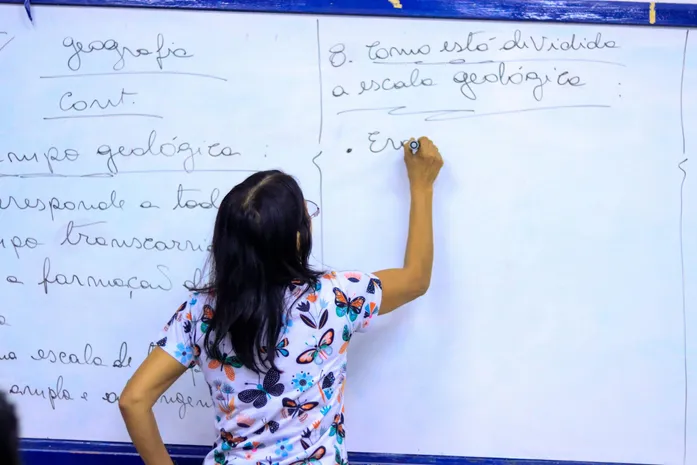 geografia
Cont.
geológica:
responde a tod
transcorri
a formação d
escala de
ampla e
8. Como está dividida
a escala geológica:
• Er